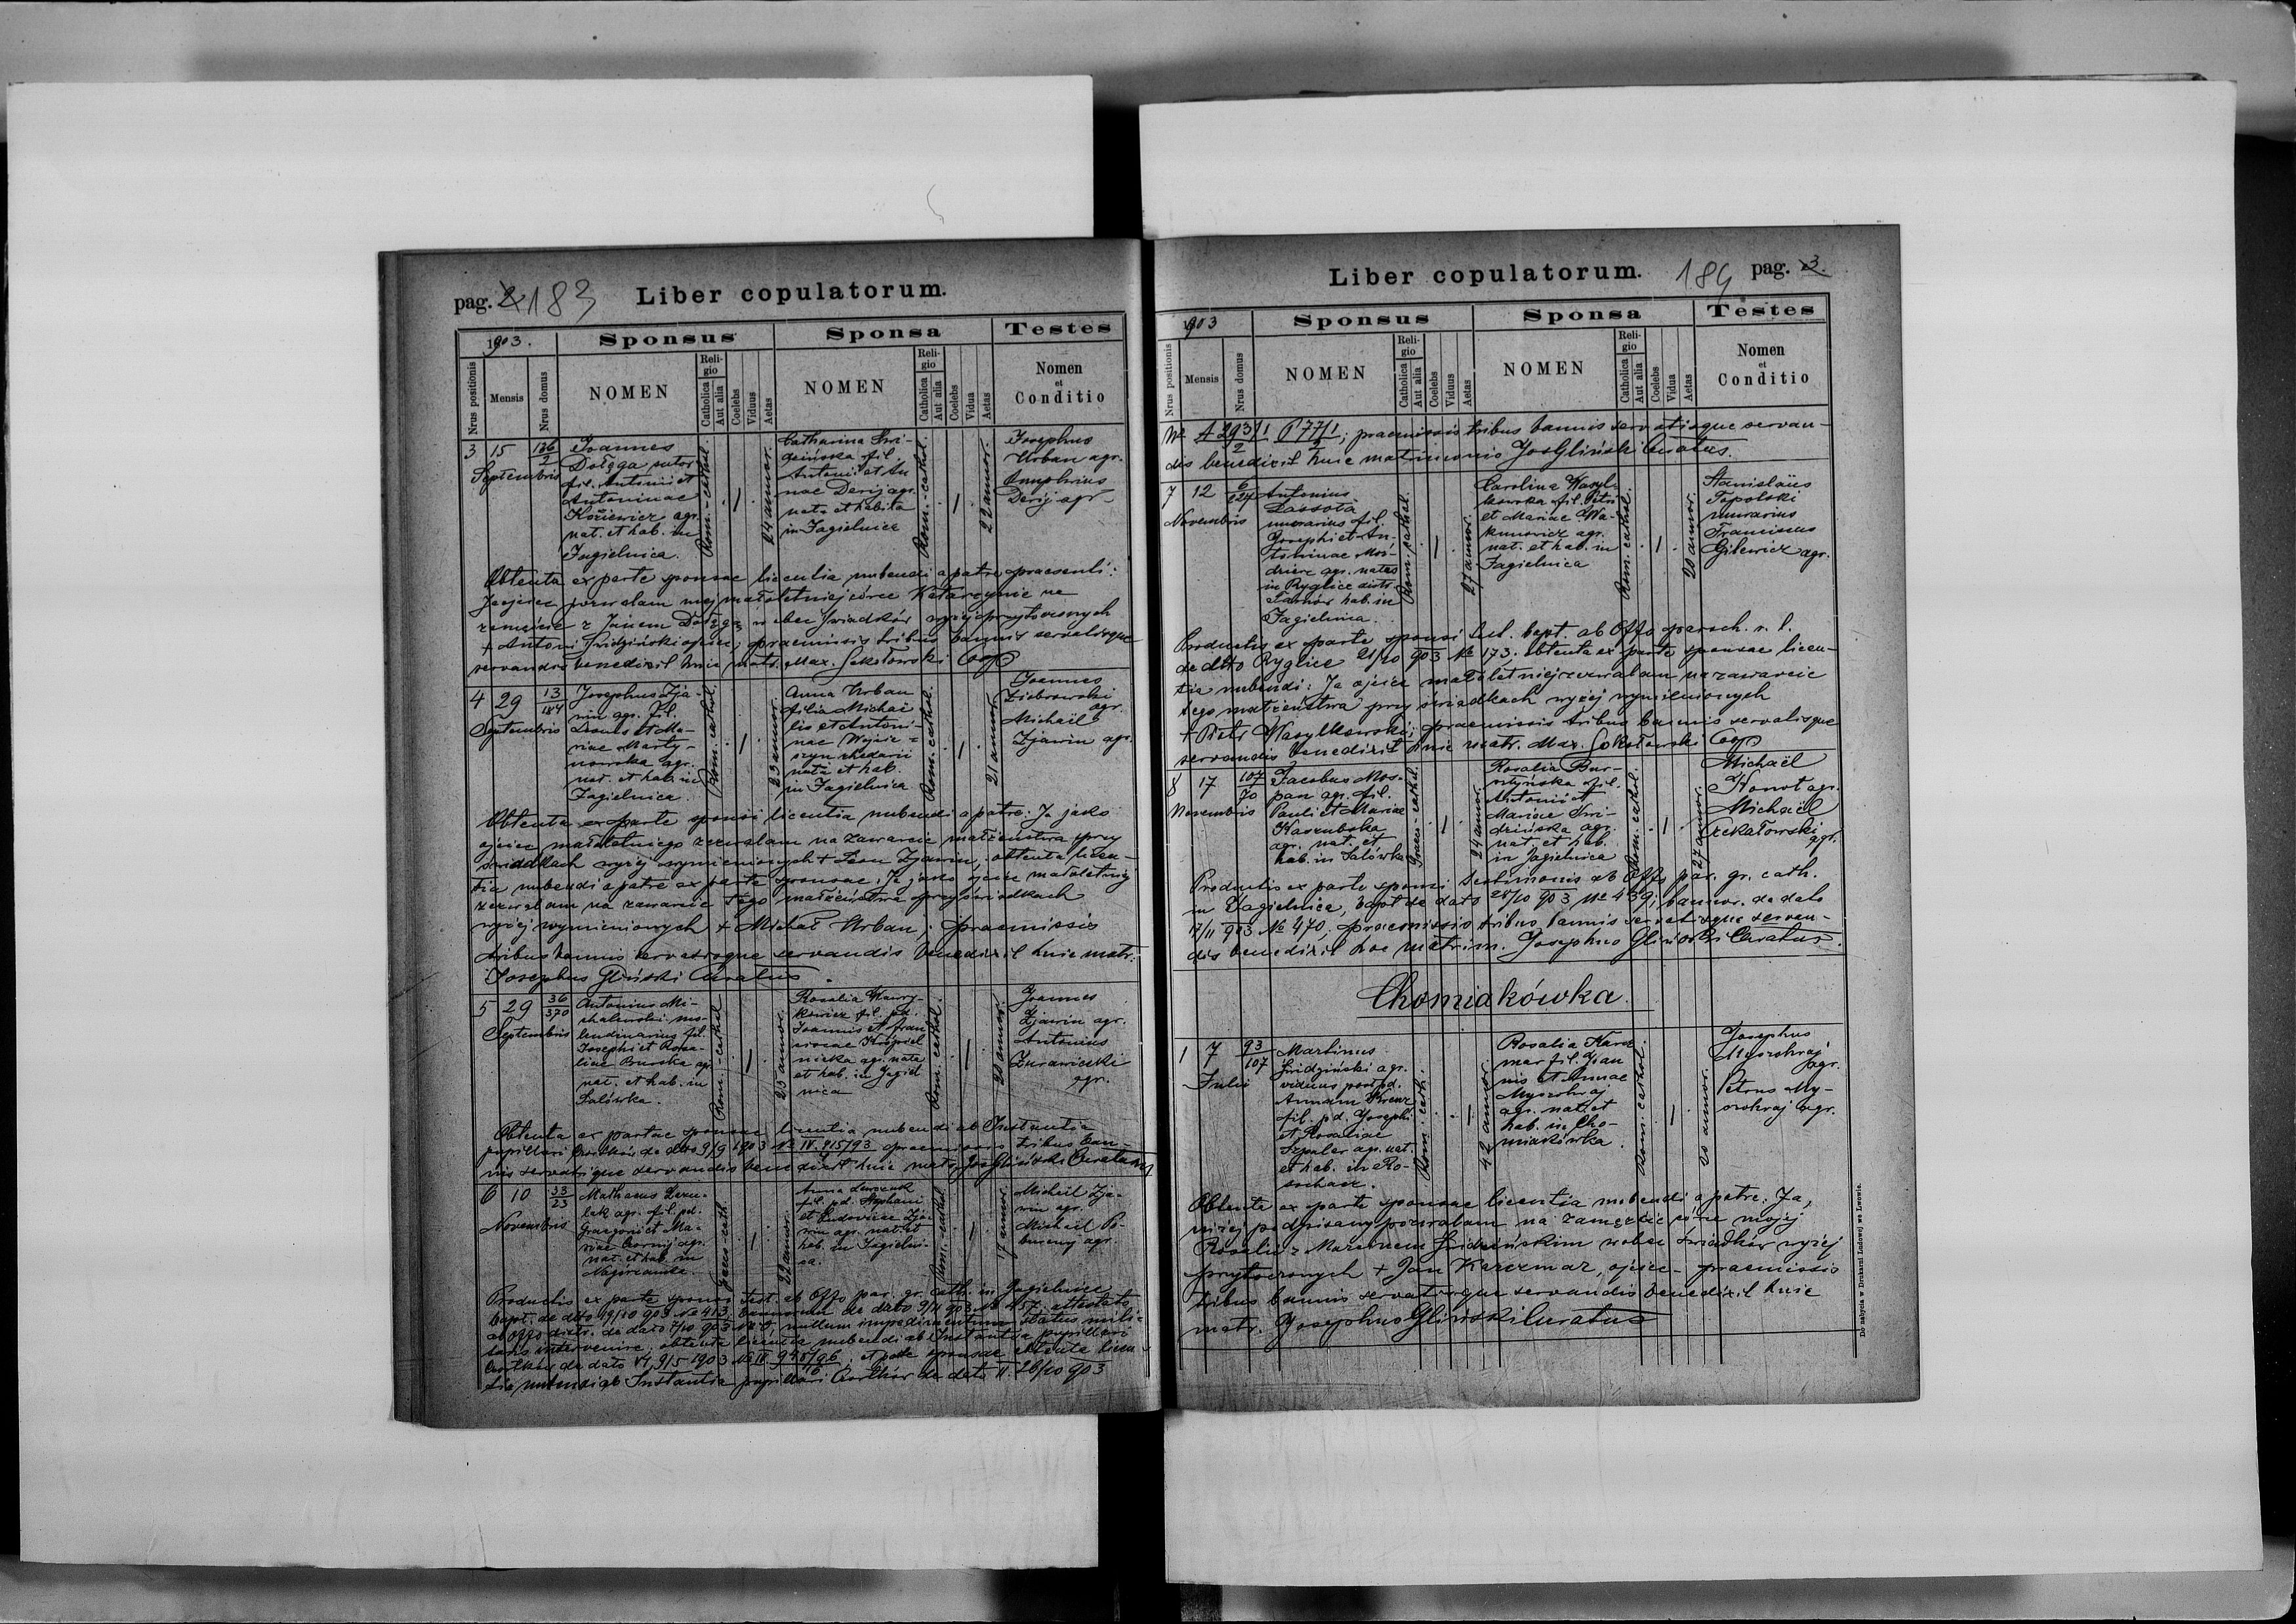 pag. 2 183 Liber copulatorum.
1903. Sponsus Sponsa Testes
Nrus positionis Mensis Nrus domus NOMEN Religio Catholica Aut alia Coelebs Viduus Aetas NOMEN Religio Catholica Aut alia Coelebs Vidua Aetas Nomen et Conditio
3 15 Septembris 136/2
Joannes
Dołęga sutor
fil. Antonii et
Antoninae
Koziewicz agr.
nat. et hab. in
Jagielnica.
Rom.-cathol.
24 annor.
Catharina Świ-
dzińska fil.
Antonii et An
nae Derij agr.
nata et habita
in Jagielnica
Rom.-cathol.
22 annor.
Josephus
Urban agr.
Onuphrius
Derij agr
Obtenta ex parte sponsae licentia nubendi a patre praesenti:
Ja ojciec pozwalam mej małoletniej córce Katarzynie na
zamęście z Janem Dołęgą wobec świadków wyżej przytoczonych
+ Antoni Świdziński ojciec; praemissis tribus bannis servatisque
servandis benedixit huic matr. Max. Sokołowski Coop
4 29 Septembris 13/184
Josephus Zja-
win agr. fil.
Leonis et Ma-
riae Marty-
nowska agr.
nat. et hab. in
Jagielnica.
Rom. cathol.
23 annor.
Anna Urban
filia Michae
lis et Antoni-
nae Wojcie-
szyn rhedarii
nata et hab.
in Jagielnica
Rom. cathol.
21 annor.
Joannes
Ziobrowski
agr.
Michaël
Zjawin agr.
Obtenta ex parte sponsi licentia nubendi a patre: Ja jako
ojciec małoletniego zezwalam na zawarcie małżeństwa przy
świadkach wyżej wymienionych + Leon Zjawin; obtenta licen-
tia nubendi a patre ex parte sponsae: Ja jako ojciec małoletniej
zezwalam na zawarcie tego małżeństwa przy świadkach
wyżej wymienionych + Michał Urban; praemissis
tribus bannis servatisque servandis benedixit huic matr.
Josephus Gliński Curatus.
5 29 Septembris 36/370
Antonius Mi-
chalewski mo-
lendinarius fil.
Josephi et Rosa-
liae Burska agr
nat. et hab. in
Salówka.
Rom.-cathol
23 annor.
Rosalia Hawry-
kowicz fil. pd.
Joannis et Fran
ciscae
nicka agr. nata
et hab. in Jagiel
nica
Rom. cathol.
20 annor.
Joannes
Zjawin agr.
Antonius
Żurawiecki
agr.
Obtenta ex partae sponsae licentia nubendi ab Instantia
pupillari Czortków de dato 9/9 1903 No IV. 215/93 praemissis tribus ban-
nis servatisque servandis benedixit huic matr. Jos Gliński Curatus
6 10 Novembris 33/23
Mathaeus
lak agr. fil. pd.
Gregorii et Ma-
riae Czornij agr.
nat. et hab. in
Nagórzanka.
Graeco-cath.
22 annor.
Anna
fil. pd. Stephani
et Ludovicae Zja-
win agr. nat. et
hab. in Jagielni-
ca.
Rom.-cathol
17 annor.
Michaël Zja-
win agr.
Michaël
agr.
Productis ex parte sponsi test. ab Offo par. gr. cath. in Jagielnica
bapt. de dtto 19/10 903 No 413. bannorum de dtto 9/11 903 No 457. attestato
ab offo distr. de dato 7/10 903 nullum impedimentum status mili-
taris intervenire; obtenta licentia nubendi ab Instantia pupillari
Czortków de dato 9/5 1903 No IV 945/96; et parte sponsae obtenta licen-
tia nubendi ab Instantia pupillari Czortków de dato 11. 26/10 903
Liber copulatorum. 184 pag. 3.
1903 Sponsus Sponsa Testes
Nrus positionis Mensis Nrus domus NOMEN Religio Catholica Aut alia Coelebs Viduus Aetas NOMEN Religio Catholica Aut alia Coelebs Vidua Aetas Nomen et Conditio
No A 293/2 P 77/2; praemissis tribus bannis servatisque servan-
dis benedixit huic matrimonio Jos Gliński Curatus.
7 12 Novembris 6/227
Antonius
Lassota
murarius fil.
Josephi et An-
toninae
agr. natus
in Ryglice distr.
Tarnów hab. in
Jagielnica.
Rom. cathol.
27 annor.
Carolina Wasyl-
kowska fil. Petri
et Mariae
agr.
nat. et hab. in
Jagielnica
Rom. cathol.
20 annor.
Stanislaus
Topolski
murarius
Franciscus
Gilewicz agr.
Productis ex parte sponsi test. bapt. ab Offo paroch. r. l.
de dtto Ryglice 21/10 903 No 173; obtenta ex parte sponsae licen-
tia nubendi: Ja ojciec małoletniej zezwalam na zawarcie
tego małżeństwa przy świadkach wyżej wymienionych
+ Piotr Wasylkowski; praemissis tribus bannis servatisque
servandis benedixit huic matr. Max. Sokołowski Coop
8 17 Novembris 107/70
Jacobus Mos-
pan agr. fil.
Pauli et Mariae
agr. nat. et
hab. in Salówka
Graeco-cathol.
24 annor.
Rosalia Bur-
sztyńska fil.
Antonii et
Mariae Świ-
dzińska agr.
nat. et hab.
in Jagielnica
Rom. cathol.
27 annor.
Michaël
Konot agr.
Michaël
Czekałowski
agr.
Productis ex parte sponsi testimoniis ab Offo par. gr. cath.
in Jagielnica, bapt. de dato 28/10 903 No 439; bannor. de dato
17/11 903 No 470, praemissis tribus bannis servatisque servan-
dis benedixit hoc matrim. Josephus Gliński Curatus.
Chomiakówka.
1 7 Julii 93/107
Martinus
Świdziński agr.
viduus post pd.
Annam
fil. pd. Josephi
et Rosaliae
agr. nat.
et hab. in Ro-
sochacz.
Rom. cath.
42 annor.
Rosalia Karcz
mar fil. Joan
nis et Annae
Myszchraj
agr. nat. et
hab. in Cho-
miakówka.
Rom. cathol.
20 annor.
Josephus
Myszchraj
agr.
Petrus My-
szchraj agr.
Obtenta ex parte sponsae licentia nubendi a patre: Ja,
niżej podpisany pozwalam na zamęście córce mojej
Rosalii z Marcinem Świdzińskim wobec świadków wyżej
przytoczonych + Jan Karczmar, ojciec - praemissis
tribus bannis servatisque servandis benedixit huic
matr. Josephus Gliński Curatus
Do nabycia w Drukarni Ludowej we Lwowie.